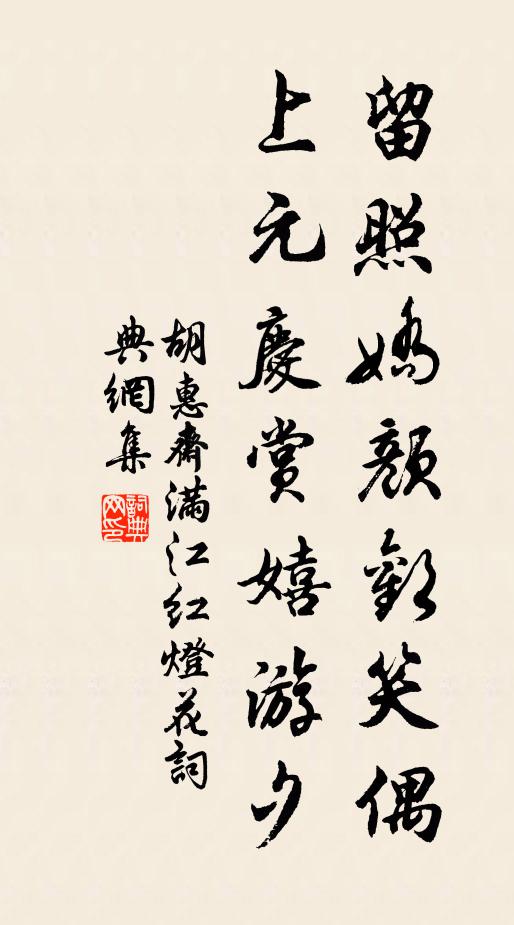 留照嬌顏歡笑偶
上元慶賞嬉游夕
胡惠齋滿江紅燈花詞
典網集
詞典網印